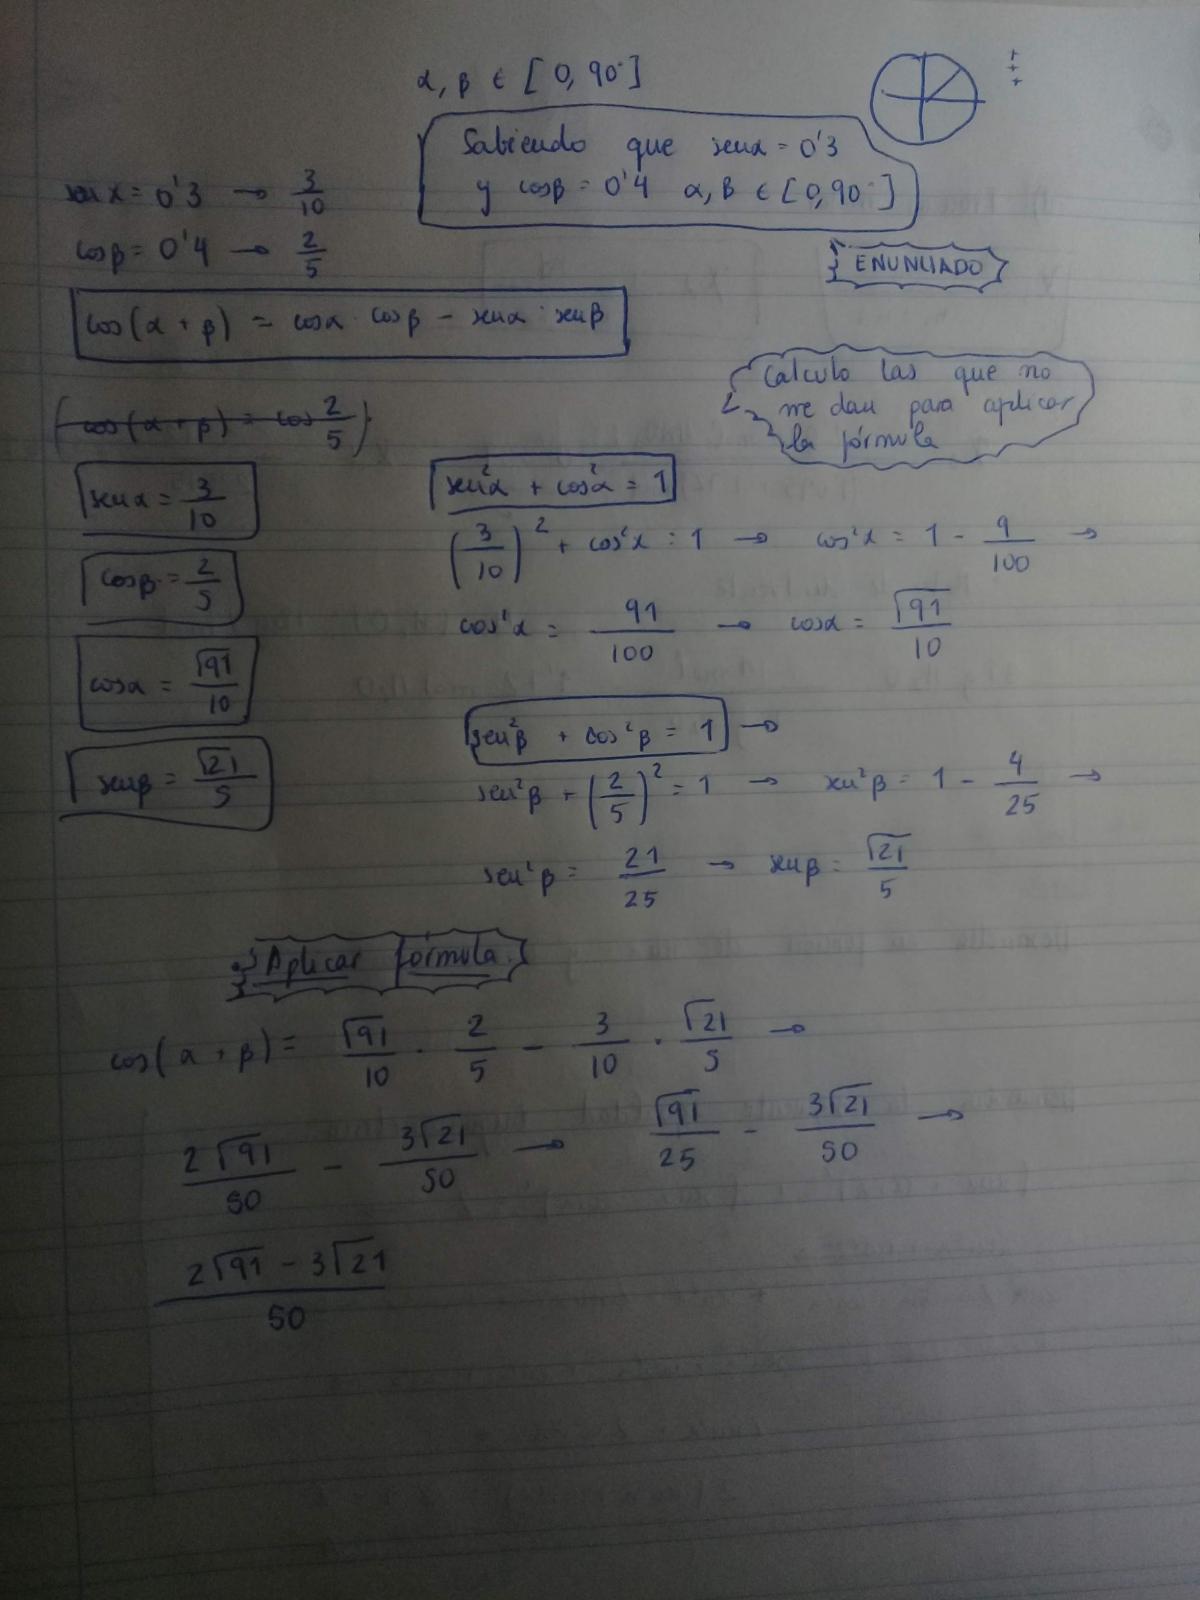 α, β ∈ [0, 90°]
Sabiendo que senα = 0'3
y cosβ = 0'4 α, β ∈ [0, 90°]
ENUNCIADO
+
+
+
sen α = 0'3 → 3/10
cosβ = 0'4 → 2/5
cos(α + β) = cosα · cosβ - senα · senβ
Calculo las que no
me dan para aplicar
la fórmula
(cos(α + β) = cos 2/5)
senα = 3/10
cosβ = 2/5
cosα = √91/10
senβ = √21/5
sen²α + cos²α = 1
(3/10)² + cos²α = 1 → cos²α = 1 - 9/100 →
cos²α = 91/100 → cosα = √91/10
sen²β + cos²β = 1 →
sen²β + (2/5)² = 1 → sen²β = 1 - 4/25 →
sen²β = 21/25 → senβ = √21/5
Aplicar fórmula.
cos(α + β) = √91/10 · 2/5 - 3/10 · √21/5 →
2√91/50 - 3√21/50 → √91/25 - 3√21/50 →
2√91 - 3√21/50